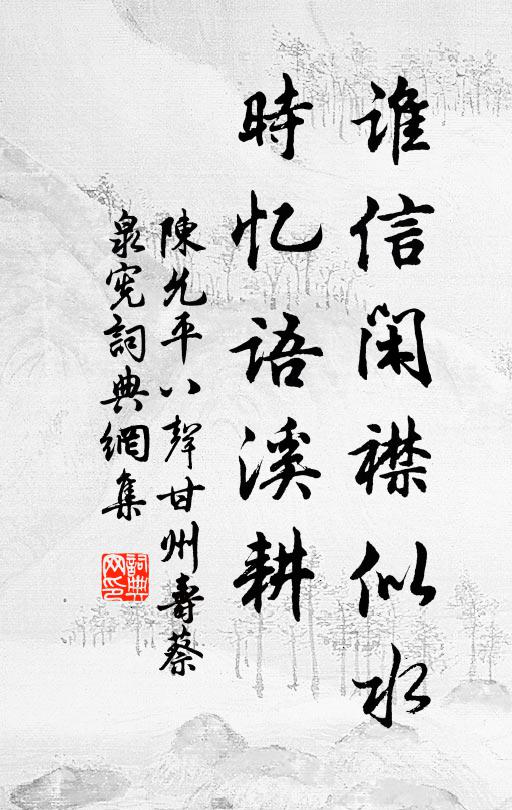 谁信闲襟似水
時忆语溪耕
陳允平八聲甘州壽蔡
泉宪詞典網集
詞典网印